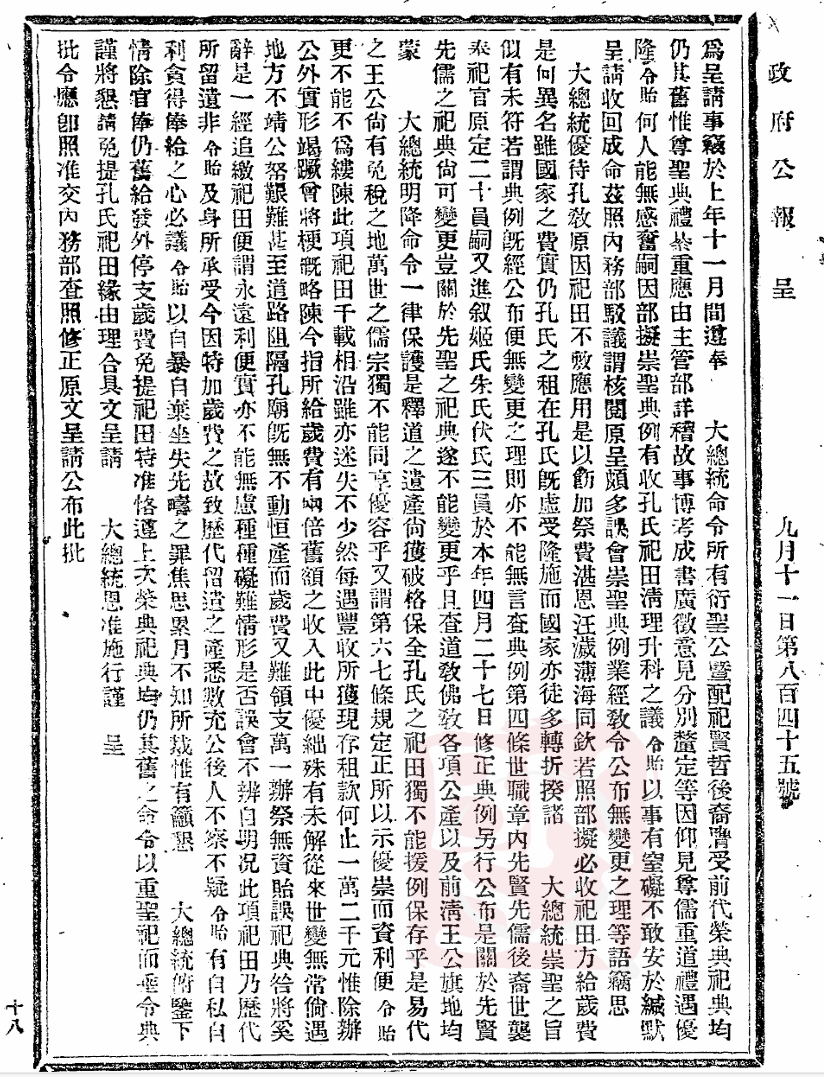 政府公報 呈 九月十一日第八百四十五號
爲呈請事竊於上年十一月間遵奉 大總統命令所有衍聖公暨配祀賢哲後裔膺受前代榮典祀典均
仍其舊惟尊聖典禮綦重應由主管部詳稽故事博考成書廣徵意見分別釐定等因仰見尊儒重道禮遇優
隆令貽何人能無感奮嗣因部擬崇聖典例有收孔氏祀田清理升科之議令貽以事有窒礙不敢安於緘默
呈請收回成命茲照內務部駁議謂核閱原呈頗多誤會崇聖典例業經敎令公布無變更之理等語竊思
大總統優待孔敎原因祀田不敷應用是以飭加祭費湛恩汪濊薄海同欽若照部擬必收祀田方給歲費
是何異名雖國家之費實仍孔氏之租在孔氏旣虛受隆施而國家亦徒多轉折揆諸 大總統崇聖之旨
似有未符若謂典例旣經公布便無變更之理則亦不能無言查典例第四條世職章內先賢先儒後裔世襲
奉祀官原定二十員嗣又進叙姬氏朱氏伏氏三員於本年四月二十七日修正典例另行公布是關於先賢
先儒之祀典尙可變更豈關於先聖之祀典遂不能變更乎且查道敎佛敎各項公產以及前淸王公旗地均
蒙 大總統明降命令一律保護是釋道之遺產尙獲破格保全孔氏之祀田獨不能援例保存乎是易代
之王公尙有免稅之地萬世之儒宗獨不能同享優容乎又謂第六七條規定正所以示優崇而資利便令貽
更不能不爲縷陳此項祀田千載相沿雖亦迷失不少然每遇豐收所獲現存租款何止一萬二千元惟除辦
公外實形竭蹶曾將梗槪略陳今指所給歲費有兩倍舊額之收入此中優絀殊有未解從來世變無常倘遇
地方不靖公帑艱難甚至道路阻隔孔廟旣無不動恒產而歲費又難領支萬一辦祭無資貽誤祀典咎將奚
辭是一經追繳祀田便謂永遠利便實亦不能無慮種種礙難情形是否誤會不辨自明况此項祀田乃歷代
所留遺非令貽及身所承受今因特加歲費之故致歷代留遺之產悉數充公後人不察不疑令貽有自私自
利貪得俸給之心必議令貽以自暴自棄坐失先疇之罪焦思累月不知所裁惟有籲懇 大總統俯鑒下
情除官俸仍舊給發外停支歲費免提祀田特准恪遵上次榮典祀典均仍其舊之命令以重聖祀而垂令典
謹將懇請免提孔氏祀田緣由理合具文呈請 大總統恩准施行謹 呈
批令應卽照准交內務部查照修正原文呈請公布此批
十八